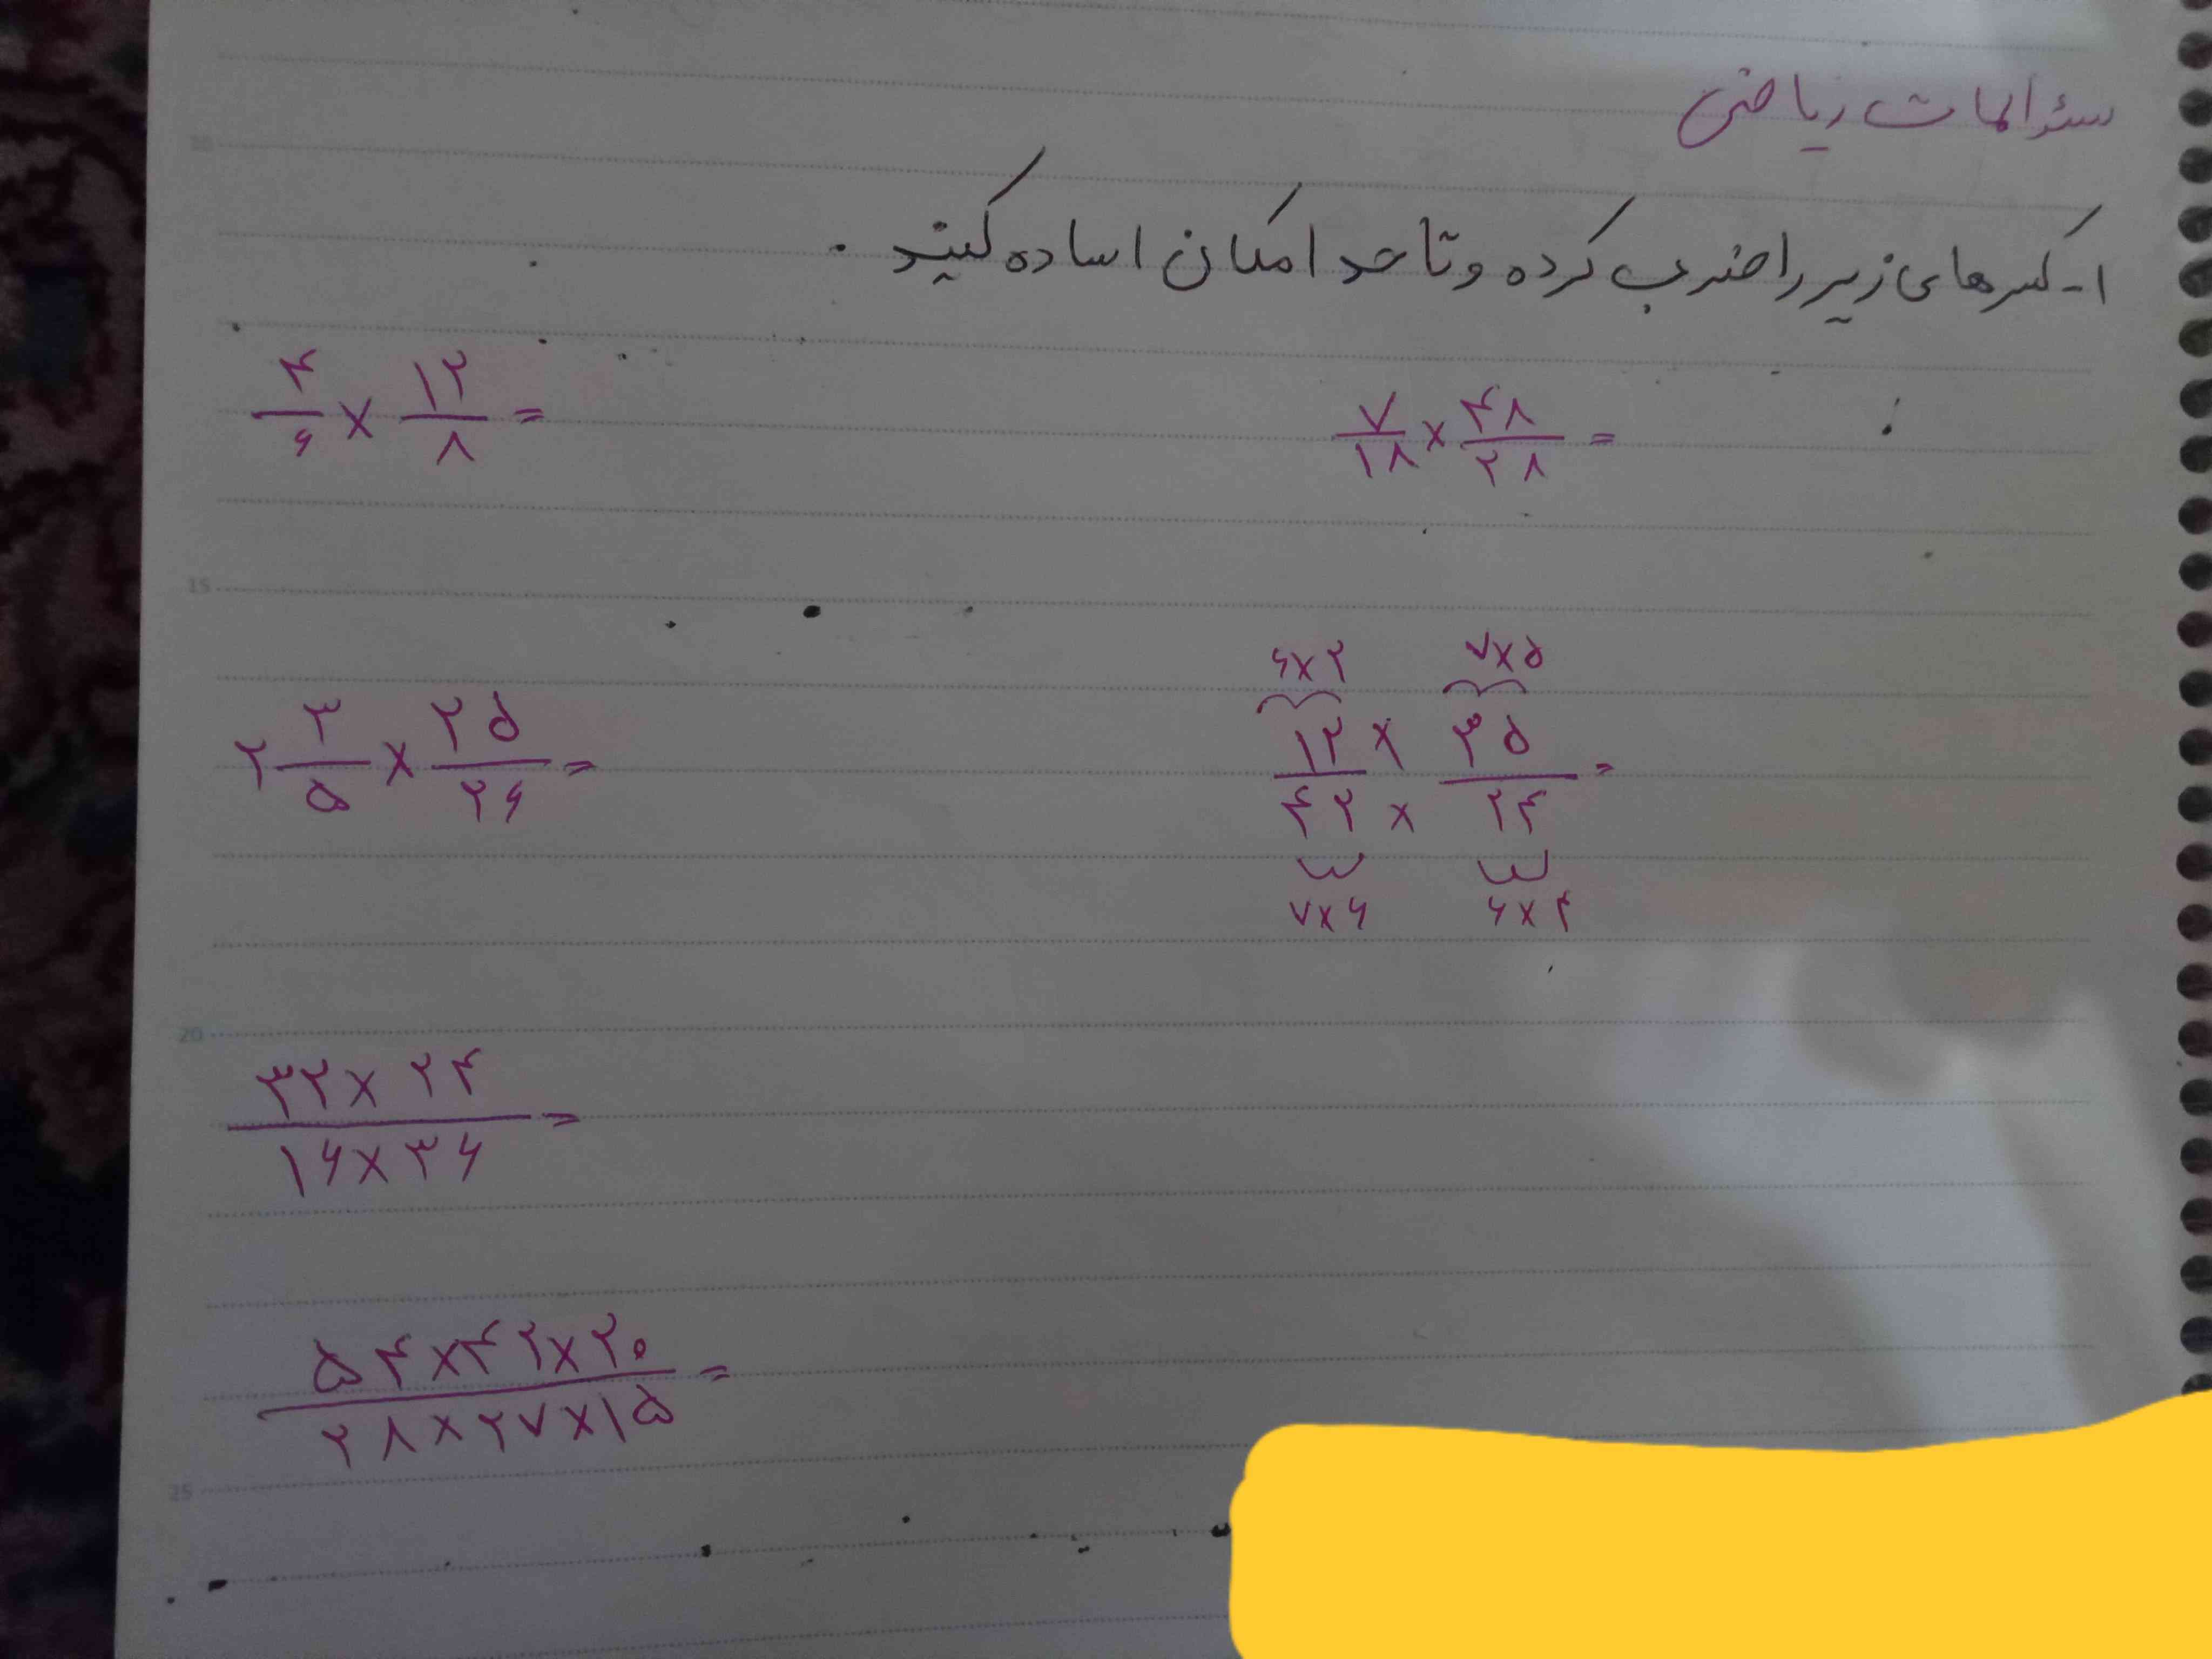 سئوالات ریاضی
۱- کسرهای زیر را ضرب کرده و تا حد امکان ساده کنید.
۴/۶ × ۱۲/۸ =
۷/۱۸ × ۴۸/۲۸ =
۶×۲ ۷×۵
۲ ۳/۵ × ۲۵/۲۶ =
۱۲ × ۳۵ =
۴۲ × ۲۴
۷×۶ ۶×۴
۳۲ × ۲۴ =
۱۶ × ۳۶
۵۴ × ۴۲ × ۲۰ =
۲۸ × ۲۷ × ۱۵
10
15
20
25